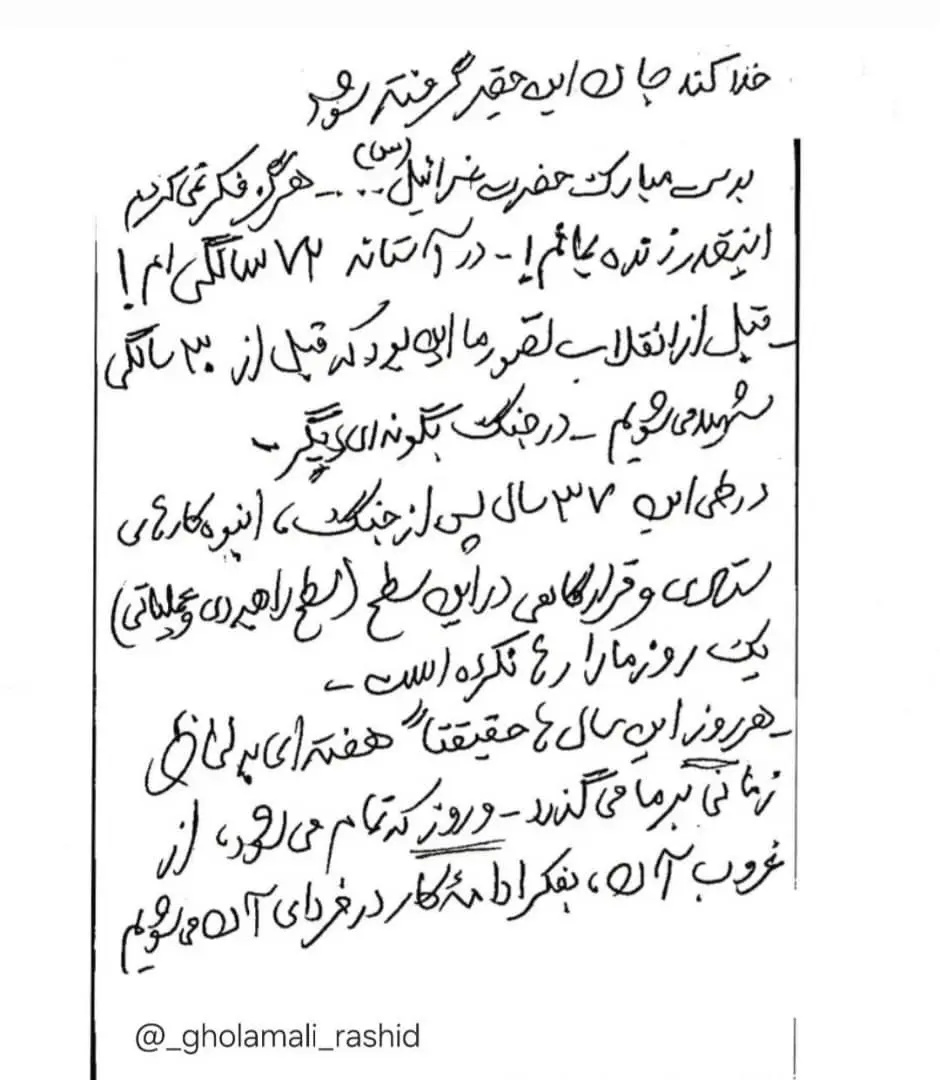 خدا کند جان این حقیر گرفته شود
بدست مبارک حضرت عزرائیل (س)... ــ هرگز فکر نمی‌کردیم
اینقدر زنده بمانم! ـ در آستانه ۷۲ سالگی ام!
ـ قبل از انقلاب تصور ما این بود که قبل از ۳۰ سالگی
شهید می‌شویم ـ در جنگ بگونه‌ای دیگر ـ
در طی این ۳۷ سال پس از جنگ، انبوه کارهای
ستادی و قرارگاهی در این سطح (سطح راهبردی و عملیاتی)
یک روز ما را رها نکرده است ـ
ـ هر روز این سال ها حقیقتاً هفته‌ای به لحاظ
زمانی بر ما می‌گذرد ـ و روز که تمام می‌شود، از
غروب آن، بفکر ادامهٔ کار در فردای آن می‌شویم
@_gholamali_rashid